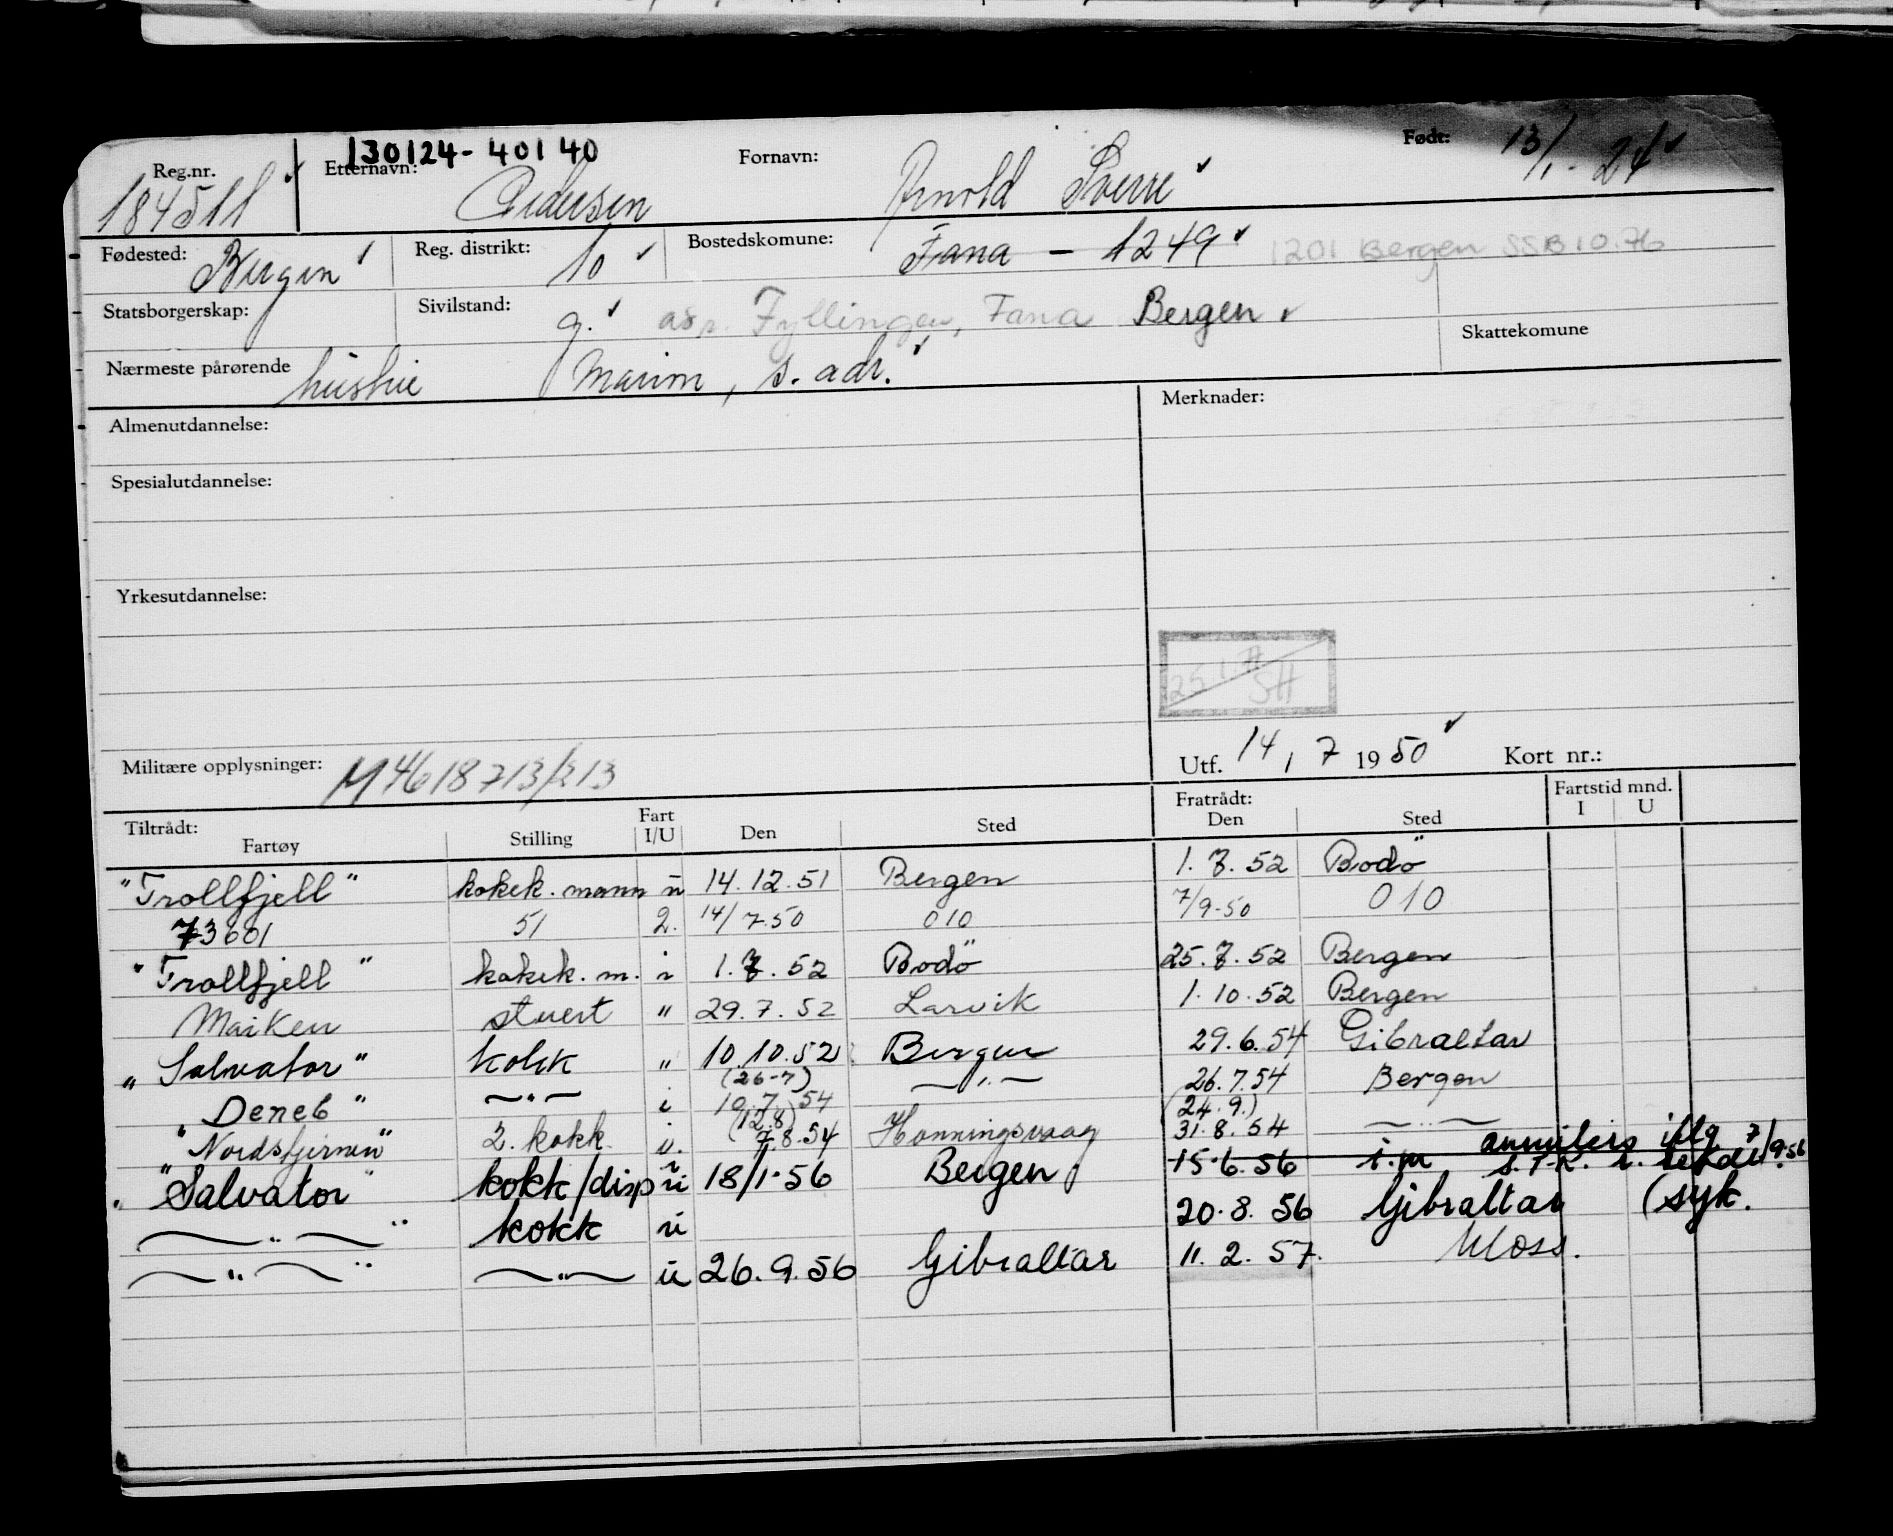 130124-40140
Reg.nr. Etternavn: Fornavn: Født: 13/1.-24
184511 Pedersen Arnold Sverre
Fødested: Bergen Reg. distrikt: 10 Bostedskomune: Fana - 1249 1201 Bergen SSB 10.76
Statsborgerskap: Sivilstand: g. Fyllingen, Fana Bergen Skattekomune
Nærmeste pårørende hustru s. adr.
Almenutdannelse: Merknader:
Spesialutdannelse:
Yrkesutdannelse:
Militære opplysninger: Utf. 14, 7 1950 Kort nr.:
Tiltrådt: Fart Fratrådt: Fartstid mnd.
Fartøy Stilling I/U Den Sted Den Sted I U
"Trollfjell" kokek. mann u 14.12.51 Bergen 1.7.52 Bodö
73601 51 2. 14/7.50 010 7/9-50 010
"Trollfjell" kokek. m. i 1.7.52 Bodö 25.7.52 Bergen
Maiken stuert " 29.7.52 Larvik 1.10.52 Bergen
"Salvator" kokk " 10.10.52 Bergen 29.6.54 Gibraltar
(26-7)
"Deneb" —"— i 10.7.54 —"— 26.7.54 Bergen
(12.8) (24.9.)
"Nordstjernen" 2. kokk. 7.8.54 Honningsvaag 31.8.54 —"—
annulers iflg 7/9-56
"Salvator" kokk/disp u 18/1-56 Bergen 15.6.56
—"—" kokk u 20.8.56 Gibraltar (syk.
—"—" —"— u 26.9.56 Gibraltar 11.2.57. Moss.